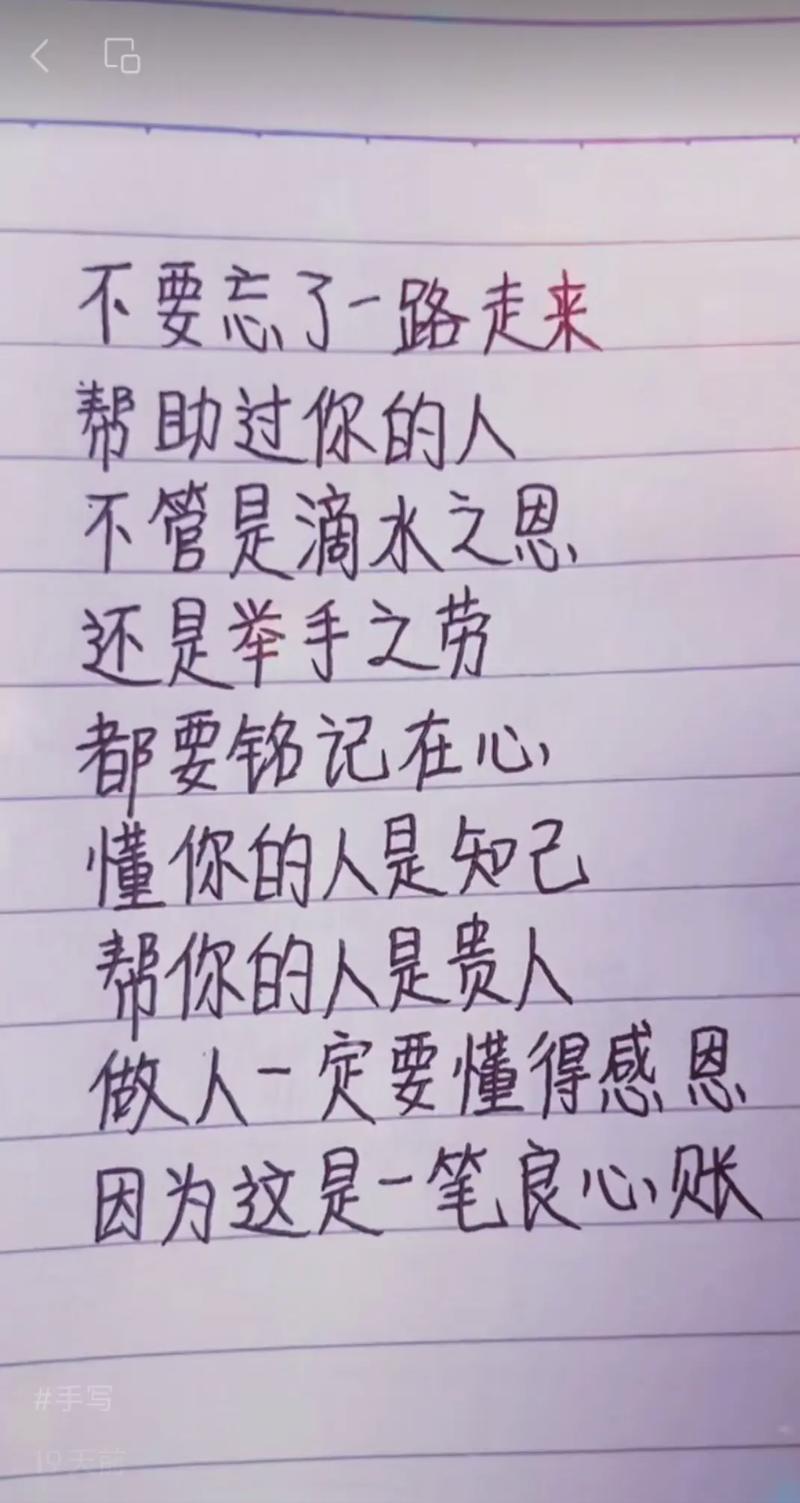 不要忘了一路走来
帮助过你的人
不管是滴水之恩
还是举手之劳
都要铭记在心
懂你的人是知己
帮你的人是贵人
做人一定要懂得感恩
因为这是一笔良心账
#手写
19天前